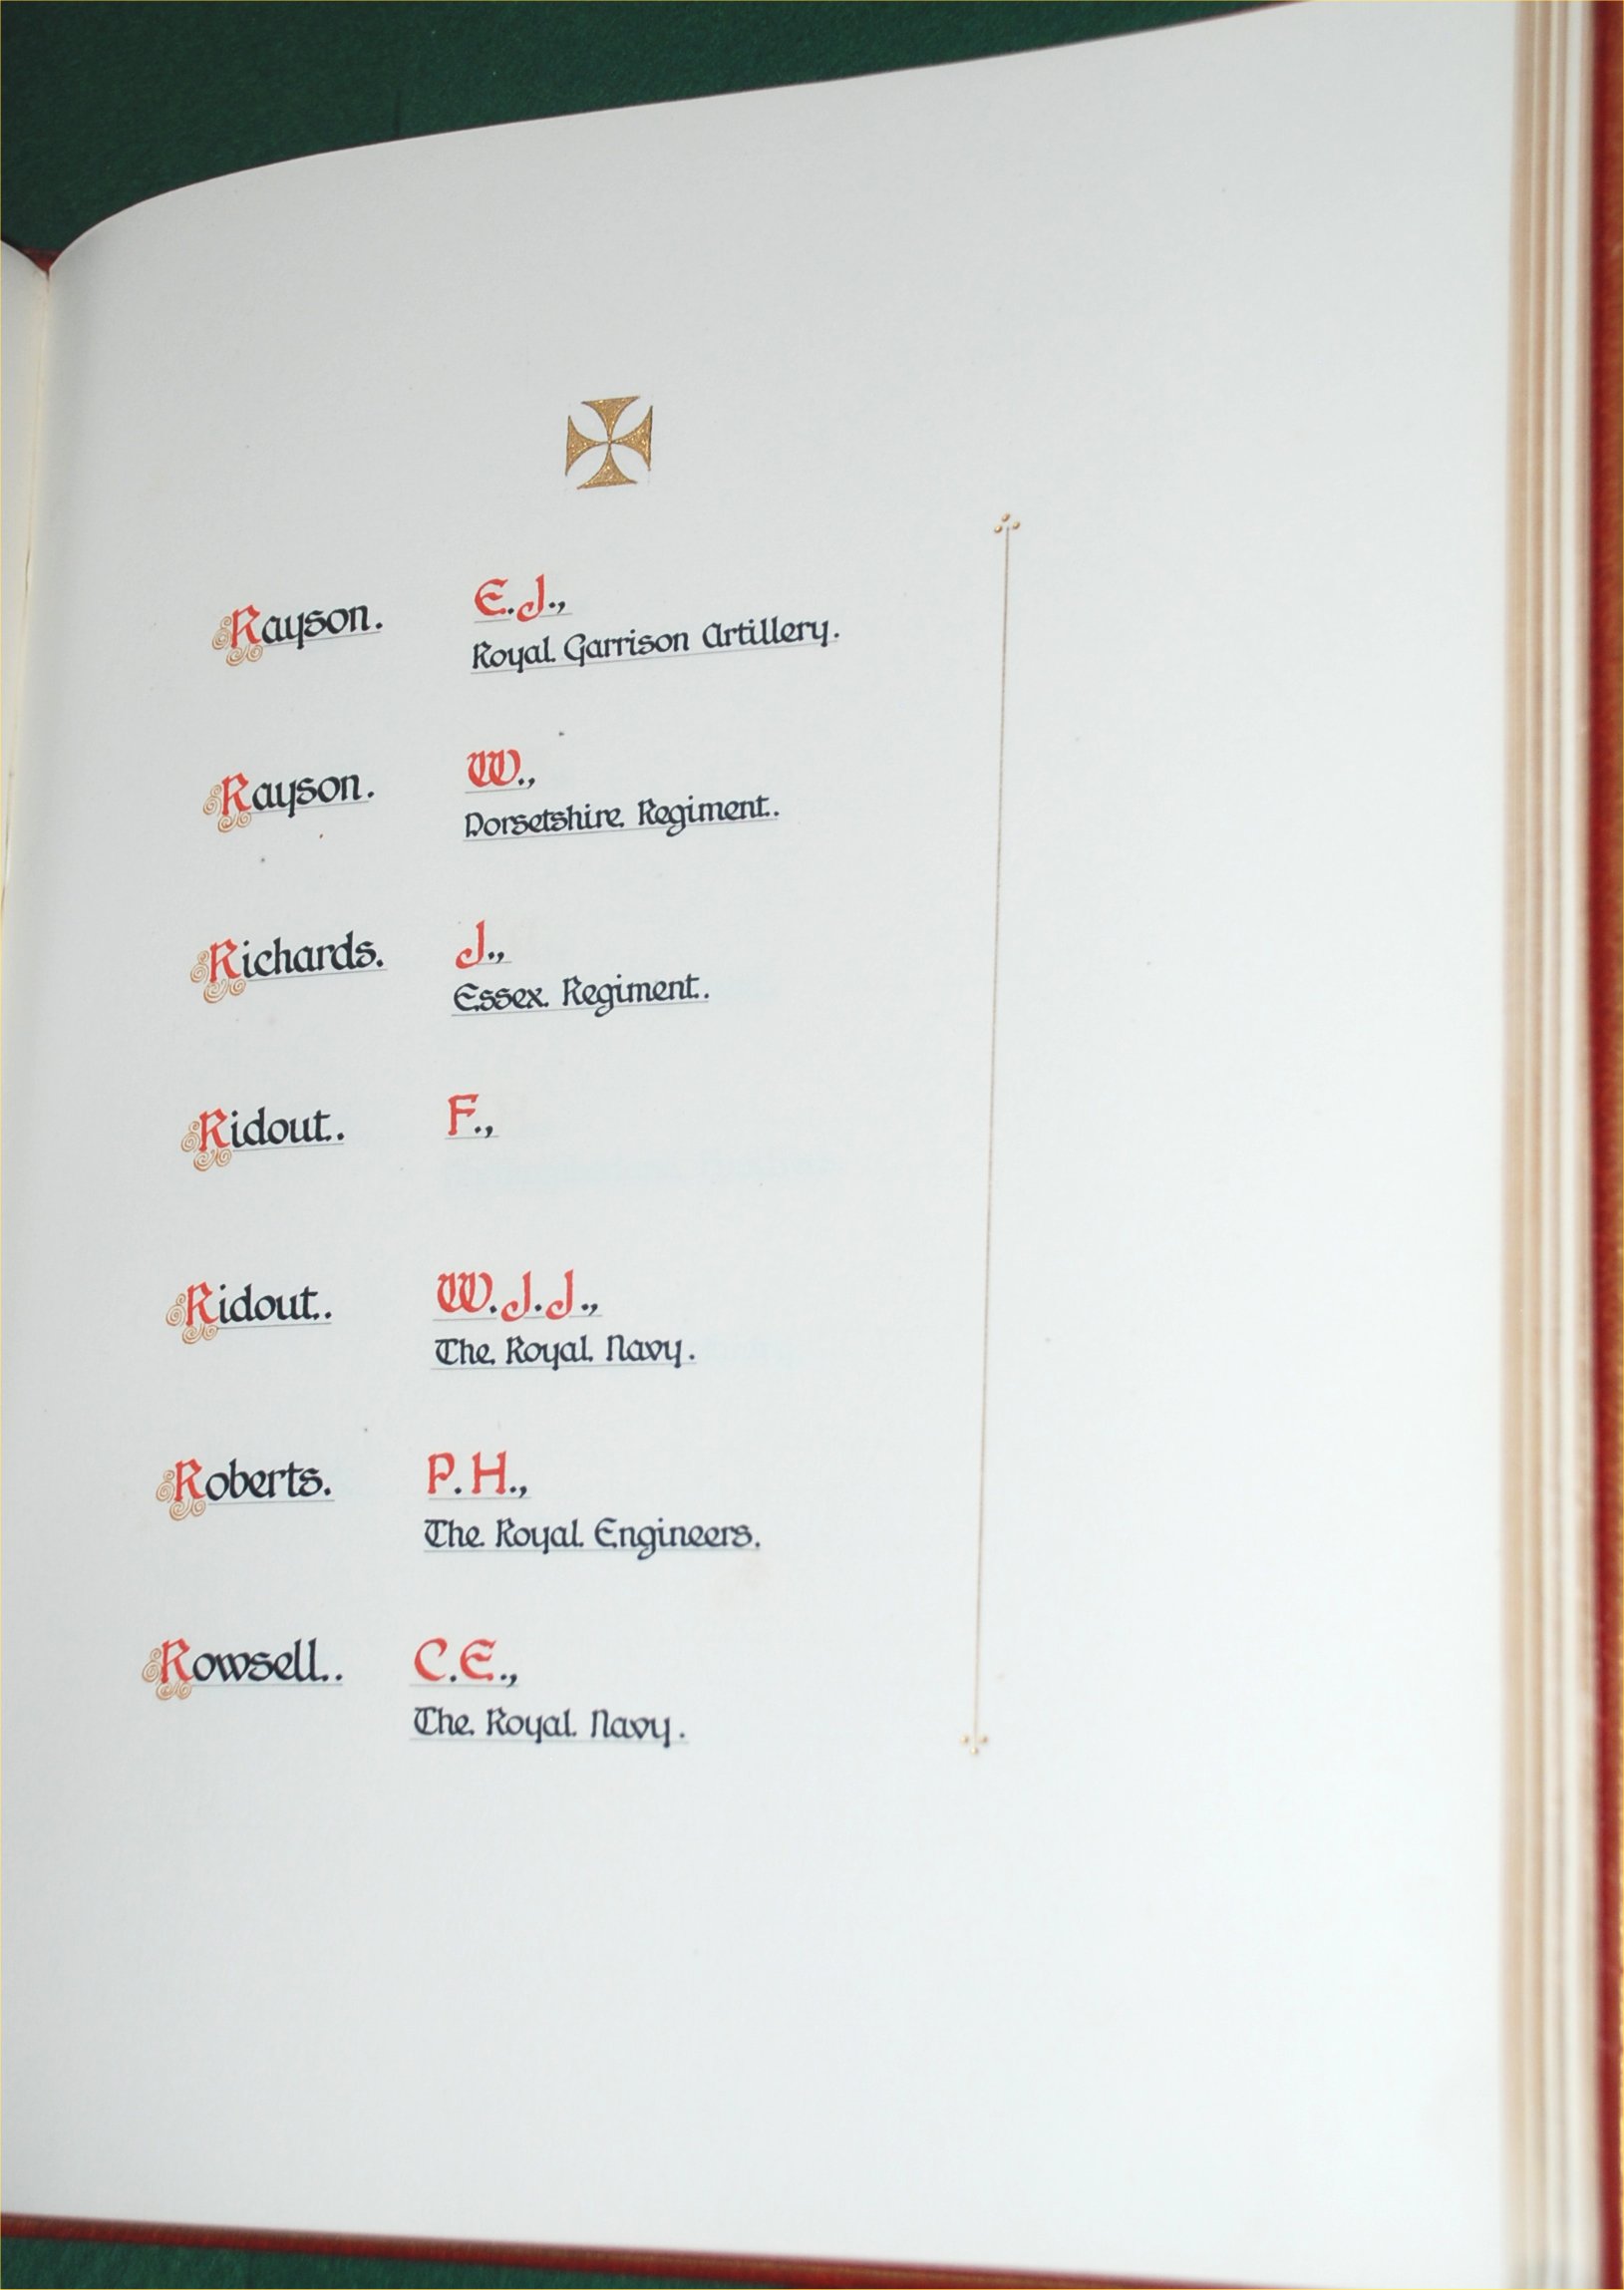 Rayson. E.J.,
Royal Garrison Artillery.
Rayson. W.,
Dorsetshire Regiment.
Richards. J.,
Essex Regiment.
Ridout. F.,
Ridout. W.J.J.,
The Royal Navy.
Roberts. P.H.,
The Royal Engineers.
Rowsell. C.E.,
The Royal Navy.